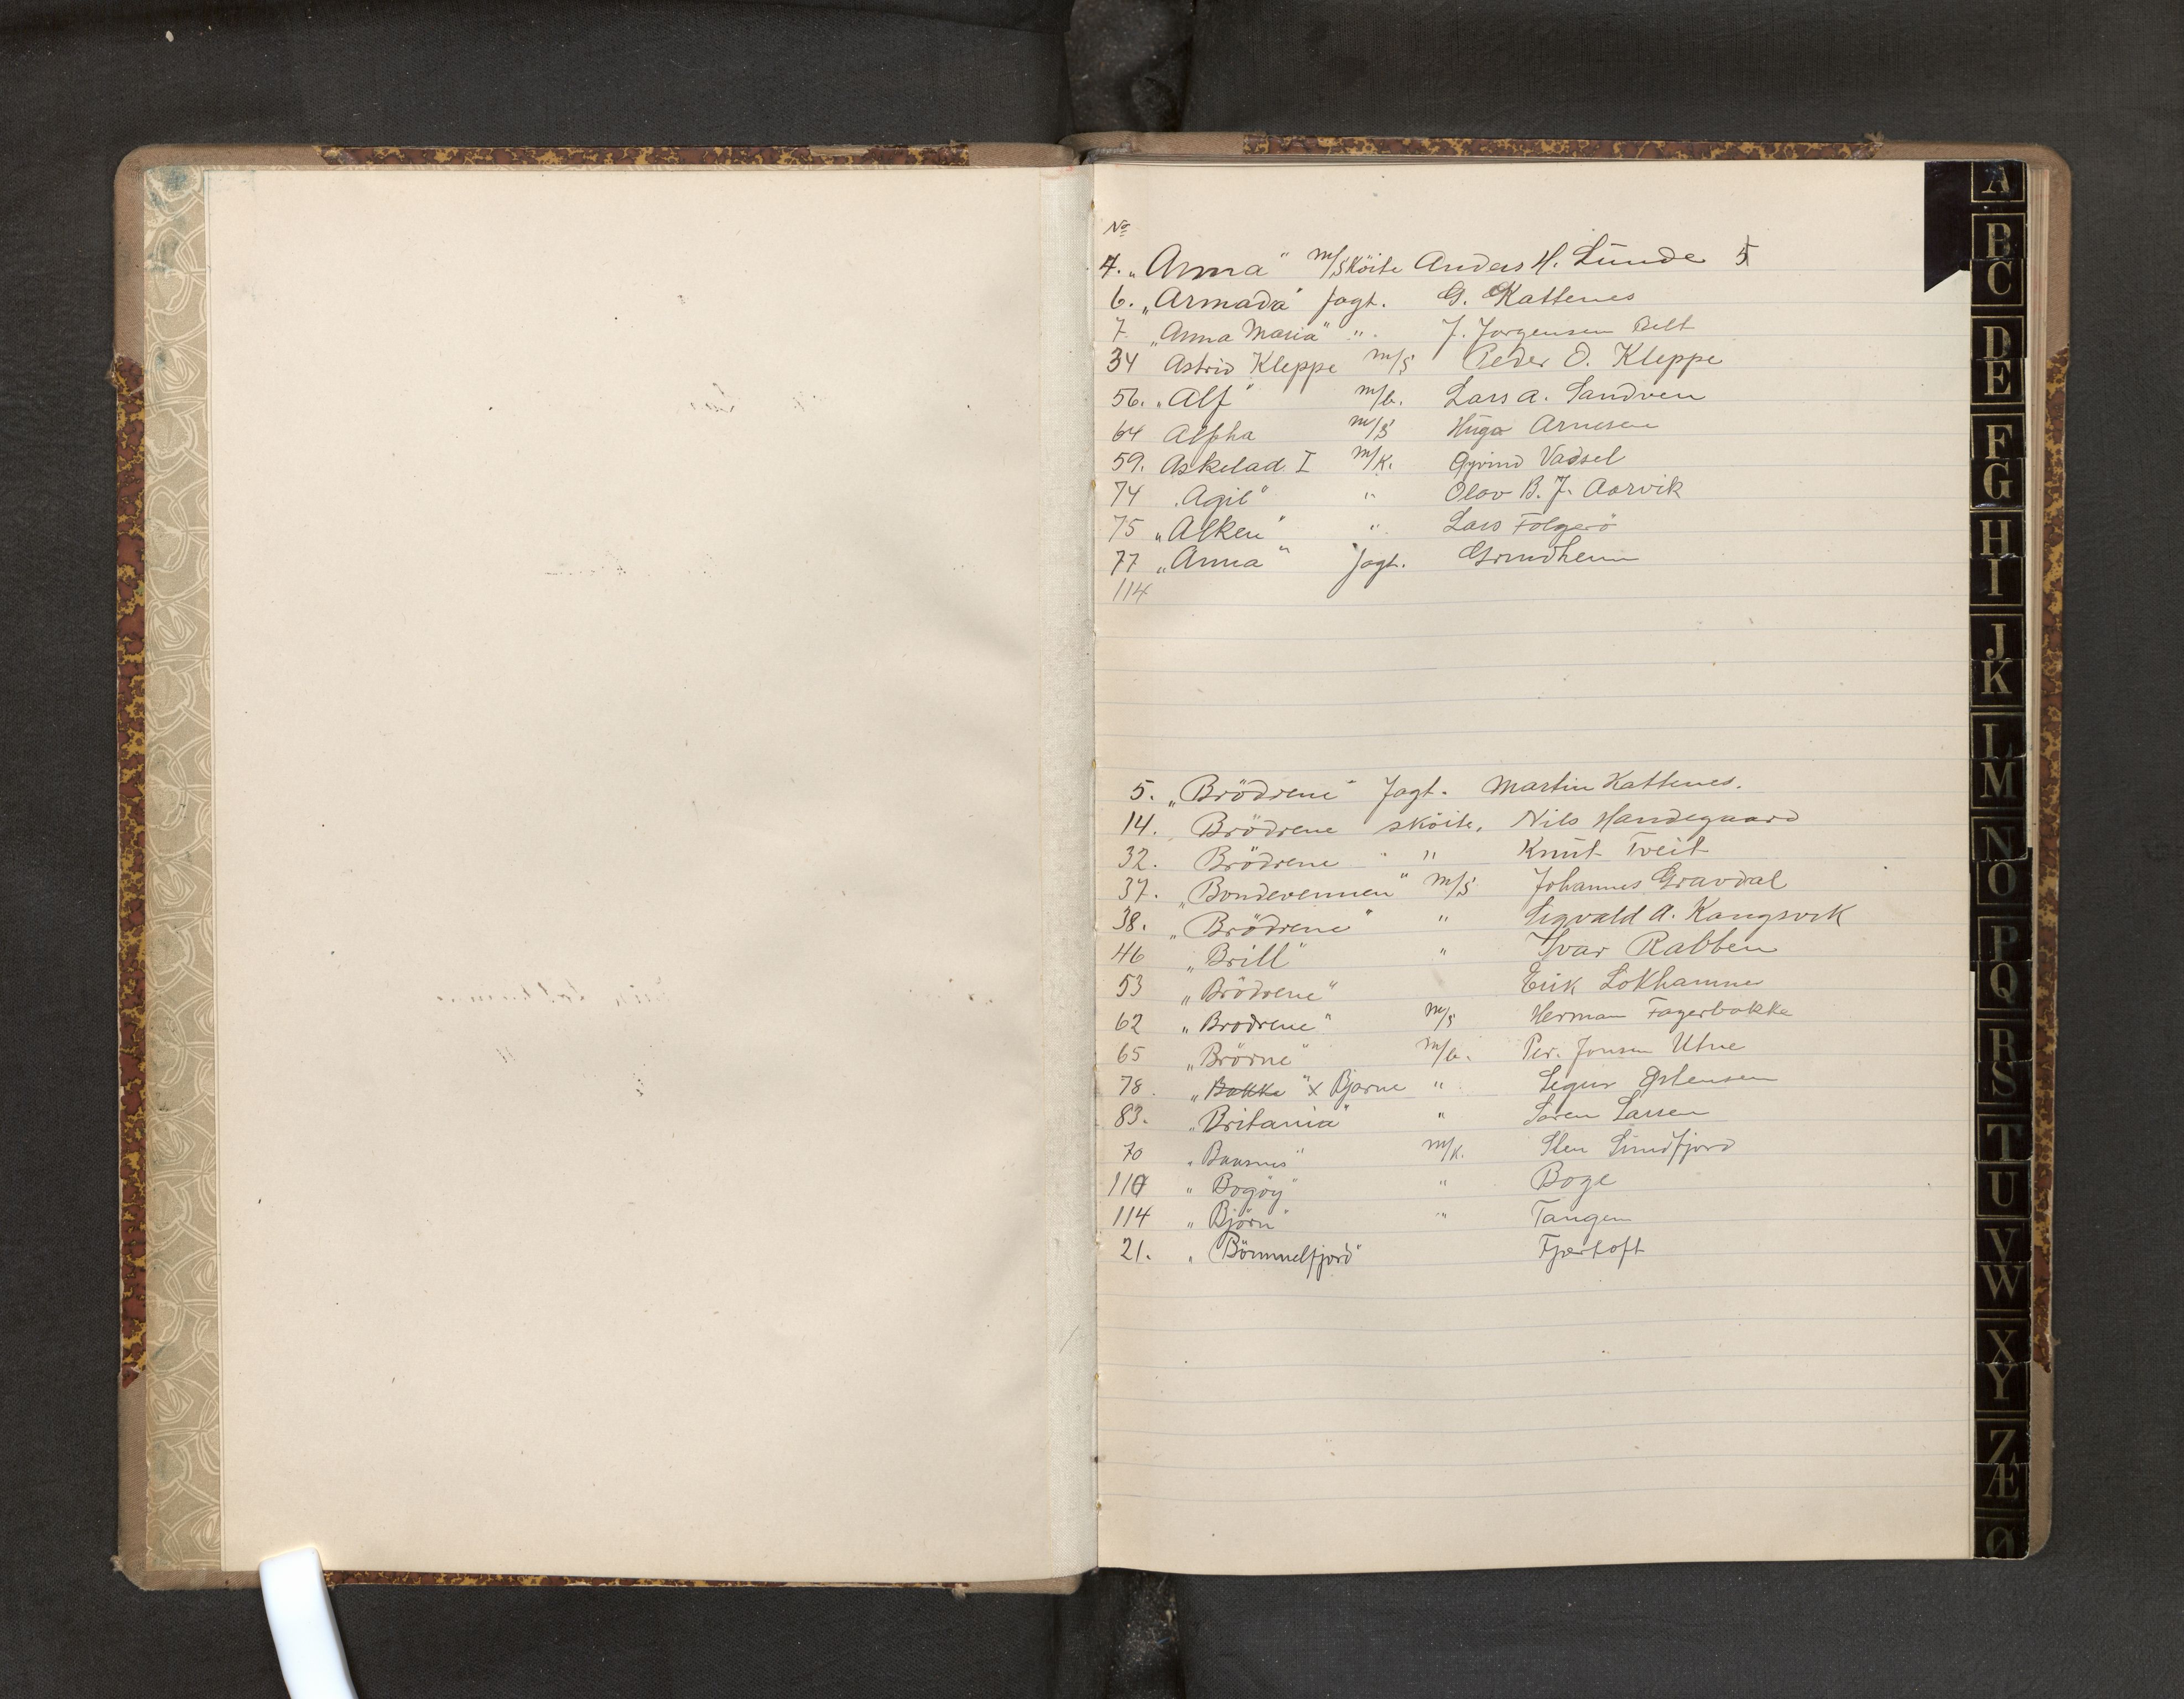 No
4. „Anna" m/sköite Anders H. Lunde 5
6. „Armada" Jagt. G. Kattenes
7 „Anna Maria" „. J. Jørgensen Belt
34 Astrid Kleppe m/s Peder O. Kleppe
56. „Alf" m/b. Lars A. Sandven
64 Alpha m/s Hugo Arnesen
59. Askelad I m/k. Øyvind Vadsel
74 „Agil" " Olav B. J. Aarvik
75 „Alken" " Lars Folgerö
77 „Anna" Jagt. Grindheim
114
5. „Brödrene" Jagt. Martin Kattenes.
14. Brödrene sköite. Nils Handegaard
32. Brödrene " " Knut Tveit
37. „Bondevennen" m/s Johannes Gravdal
38. „Brödrene" " Sigvald A. Kangsvik
46 „Brill" " Ivar Rabben
53 „Brödrene" Erik Lokhamme
62 „Brodrene" m/s Herman Fagerbakke
65 „Brörne" m/b. Per. Jonsen Utne
78. „Bakke" x Bjarne " Sigur Østensen
83. „Britania" " Søren Larsen
70 m/k. Sten Sundfjord
110 „Bogöy" " Boge
114 „Björn" " Tangen
21. „Bömmelfjord" Fjærtoft
A
B
C
D
E
F
G
H
I
J
K
L
M
N
O
P
Q
R
S
T
U
V
W
X
Y
Z
Æ
Ø